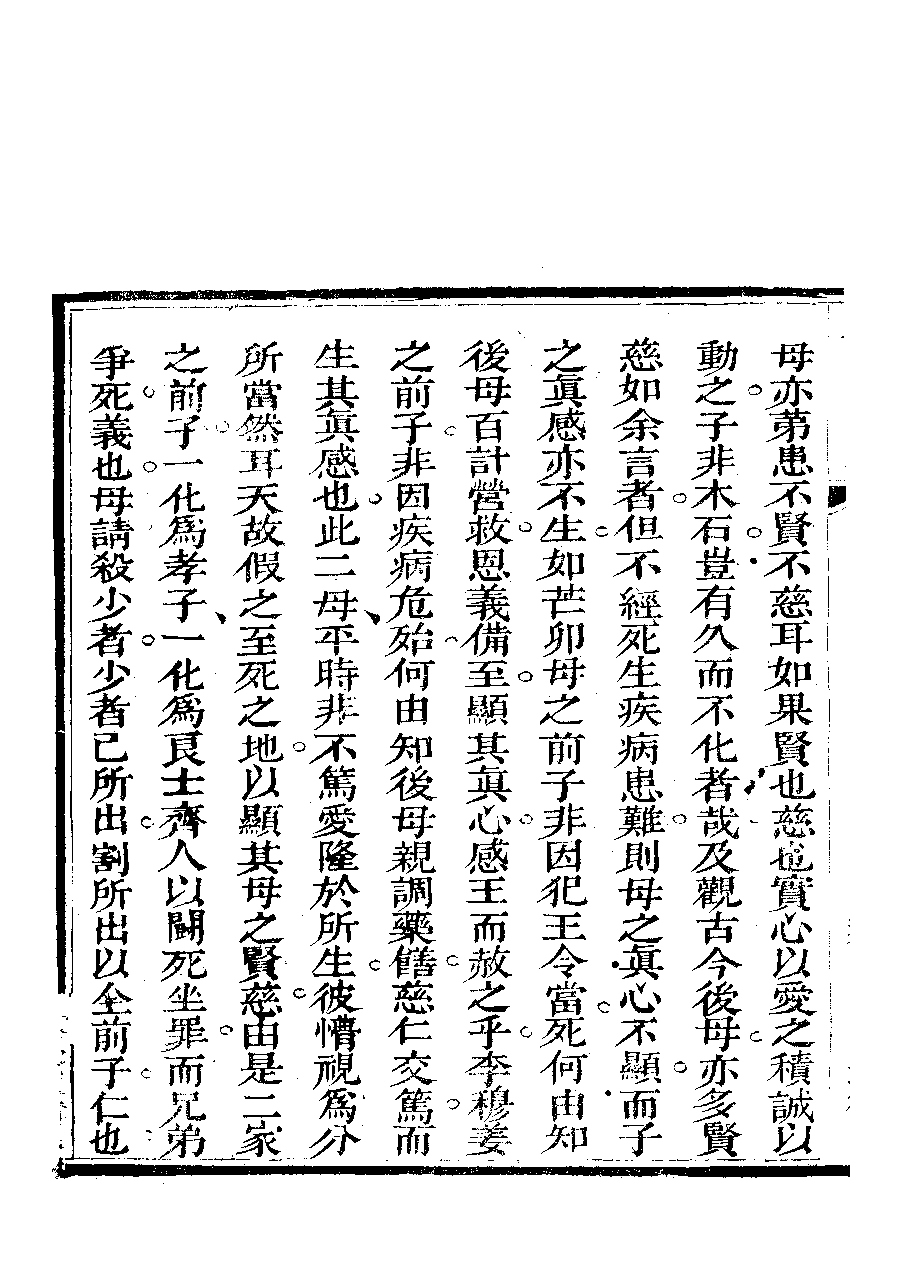 母亦第患不賢不慈耳如果賢也慈也實心以愛之積誠以
動之子非木石豈有久而不化者哉及觀古今後母亦多賢
慈如余言者但不經死生疾病患難則母之眞心不顯而子
之眞感亦不生如芒卯母之前子非因犯王令當死何由知
後母百計營救恩義備至顯其眞心感王而赦之乎李穆姜
之前子非因疾病危殆何由知後母親調藥饍慈仁交篤而
生其眞感也此二母平時非不篤愛隆於所生彼懵視爲分
所當然耳天故假之至死之地以顯其母之賢慈由是二家
之前子一化爲孝子一化爲良士齊人以鬭死坐罪而兄弟
爭死義也母請殺少者少者己所出割所出以全前子仁也